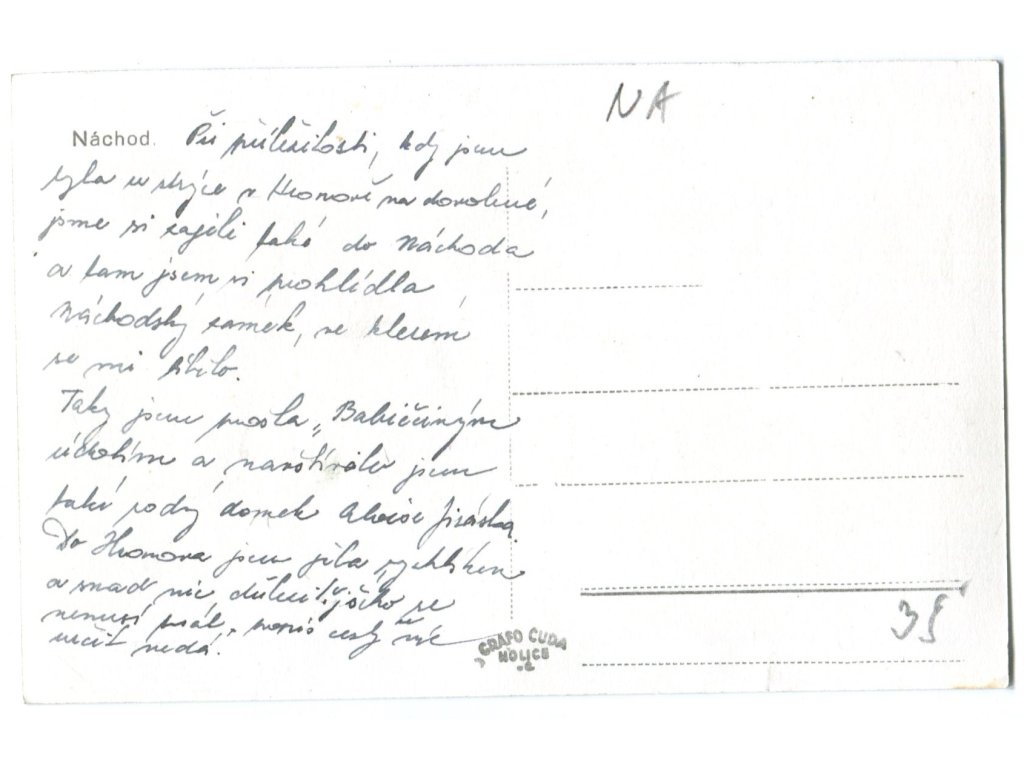 NA
Náchod. Při příležitosti, kdy jsem
byla u strýce v Hronově na dovolené,
jsme si zajeli také do Náchoda
a tam jsem si prohlédla
Náchodský zámek, ve kterém
se mi líbilo.
Taky jsem prošla „Babiččiným
údolím a navštívila jsem
také rodný domek Aloise Jiráska.
Do Hronova jsem jela rychlíkem
a snad nic důležitějšího se
nemusí psát, cesty víc
určit nedá.
GRAFO ČUDA
HOLICE
35